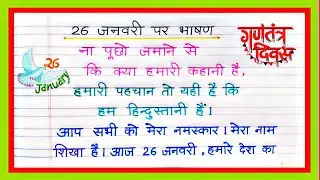 26 जनवरी पर भाषण
गणतंत्र
दिवस
26
January
ना पूछो जमाने से
कि क्या हमारी कहानी है,
हमारी पहचान तो यही है कि
हम हिन्दुस्तानी हैं।
आप सभी को मेरा नमस्कार। मेरा नाम
शिखा है। आज 26 जनवरी, हमारे देश का